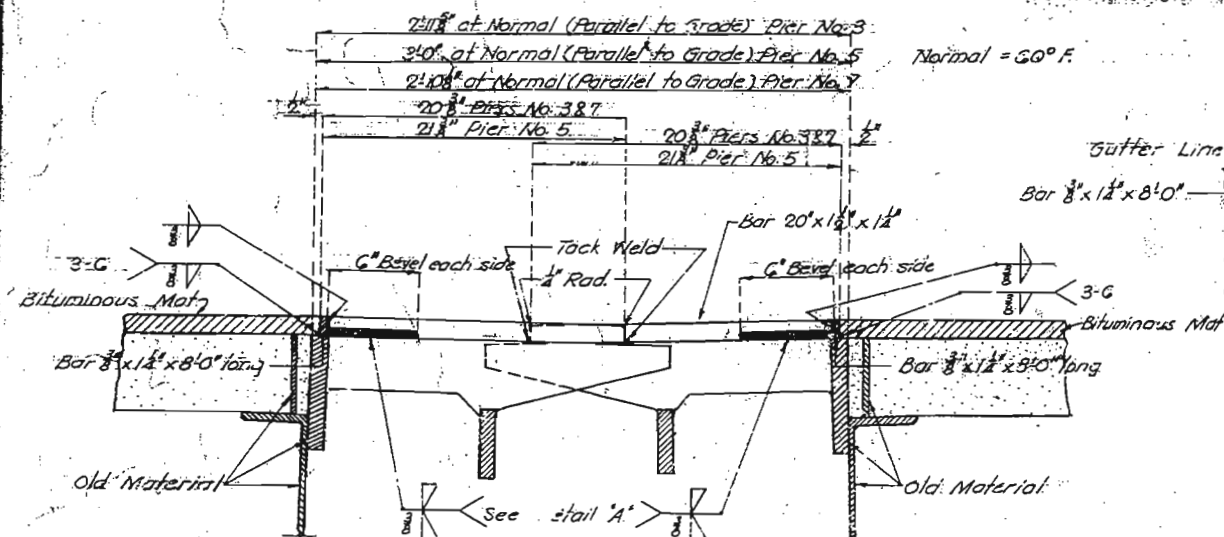 2'-11⅝" at Normal (Parallel to Grade) Pier No. 3
3'-0" at Normal (Parallel to Grade) Pier No. 5
Normal = 60° F.
2'-10⅝" at Normal (Parallel to Grade) Pier No. 7
½" 20⅜" Piers No. 3&7
21⅜" Pier No. 5
20⅜" Piers No. 3&7 ½"
21⅜" Pier No. 5
Gutter Line
Bar ⅜" x 1¼" x 8'-0"
Bar 20" x 1½" x 1¼"
Tack Weld
3-6
6" Bevel each side
¼" Rad.
6" Bevel each side
3-6
Bituminous Mat
Bituminous Mat
Bar ⅜" x 1¼" x 8'-0" long
Bar ⅜" x 1¼" x 8'-0" long
Old Material
See etail "A"
Old Material